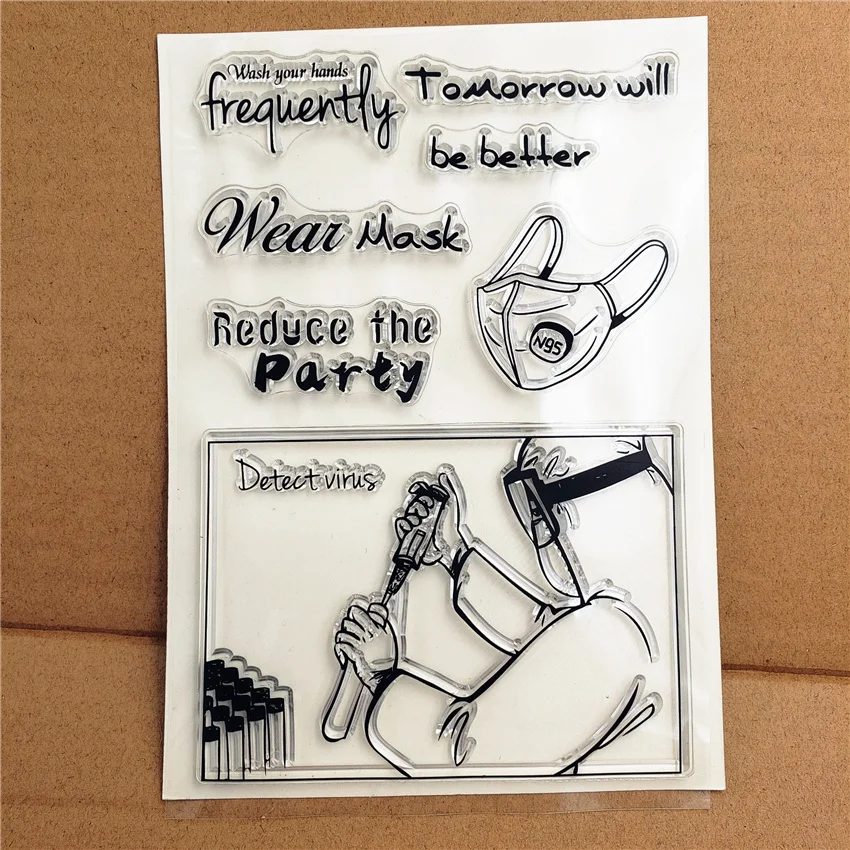 Wash your hands
frequently
Tomorrow will
be better
Wear Mask
N95
Reduce the
Party
Detect virus